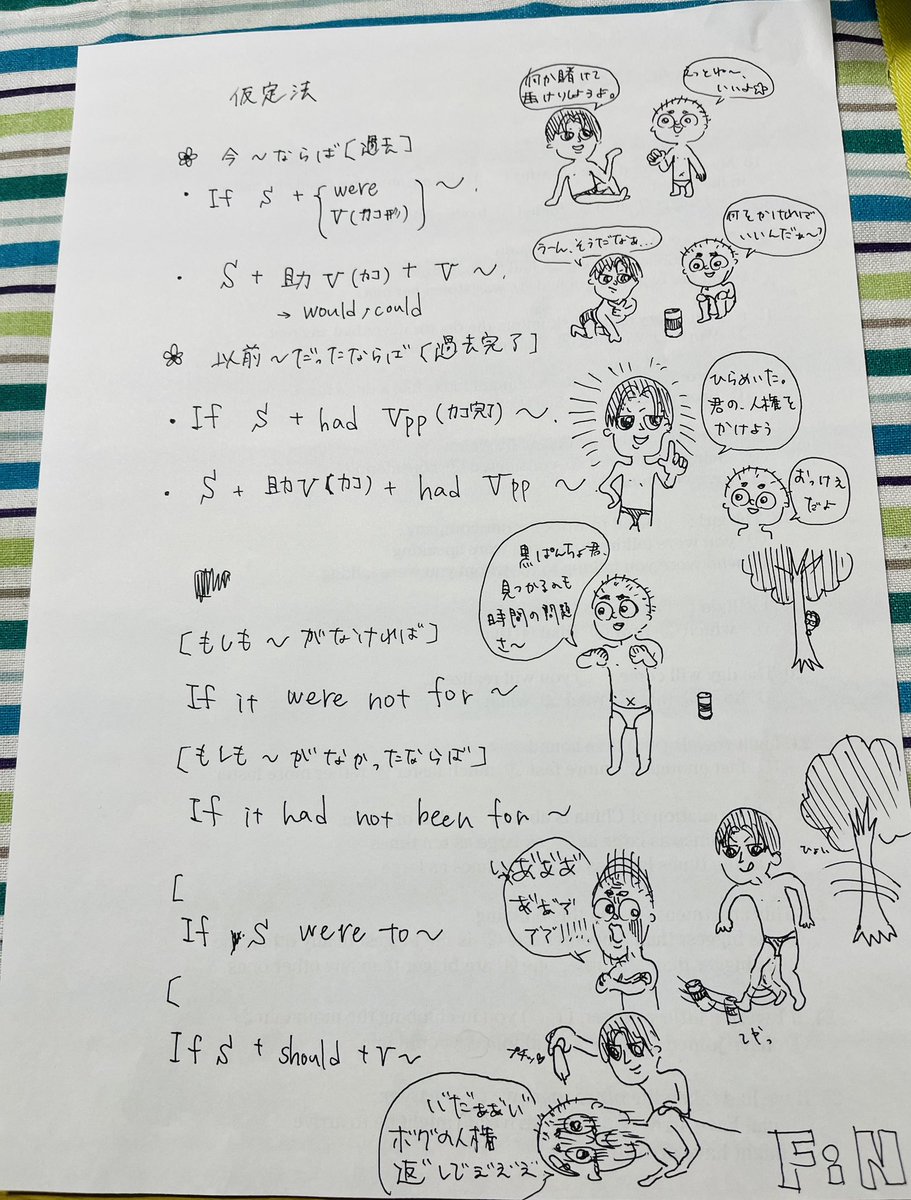 仮定法
❀ 今〜ならば[過去]
・If S + { were
V(カコ形) } 〜.
・S + 助V(カコ) + V 〜.
→ would, could
❀ 以前〜だったならば[過去完了]
・If S + had Vpp(カコ完了) 〜.
・S + 助V(カコ) + had Vpp 〜
[もしも〜がなければ]
If it were not for 〜
[もしも〜がなかったならば]
If it had not been for 〜
[
If S were to 〜
[
If S + should + V 〜
何か賭けて
缶けりしようよ。
えっとね〜、
いいよ
うーん、そうだなぁ...
何をかければ
いいんだぁ〜?
ひらめいた。
君の、人権を
かけよう
おっけぇ
だよ
黒ぱんちょ君、
見つかるのも
時間の問題
さ〜
ひょい
てやっ
プチッ
いだぁぁい
ボグの人権
返じでぇぇぇ
FiN